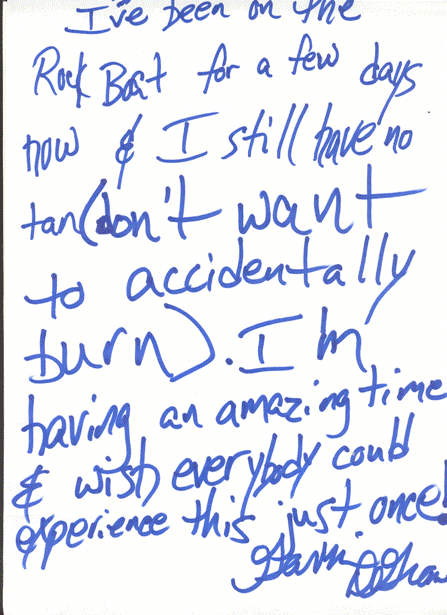 I've been on the
Rock Boat for a few days
now & I still have no
tan (don't want
to accidentally
burn). I'm
having an amazing time
& wish everybody could
experience this just once!
Gavin DeGraw